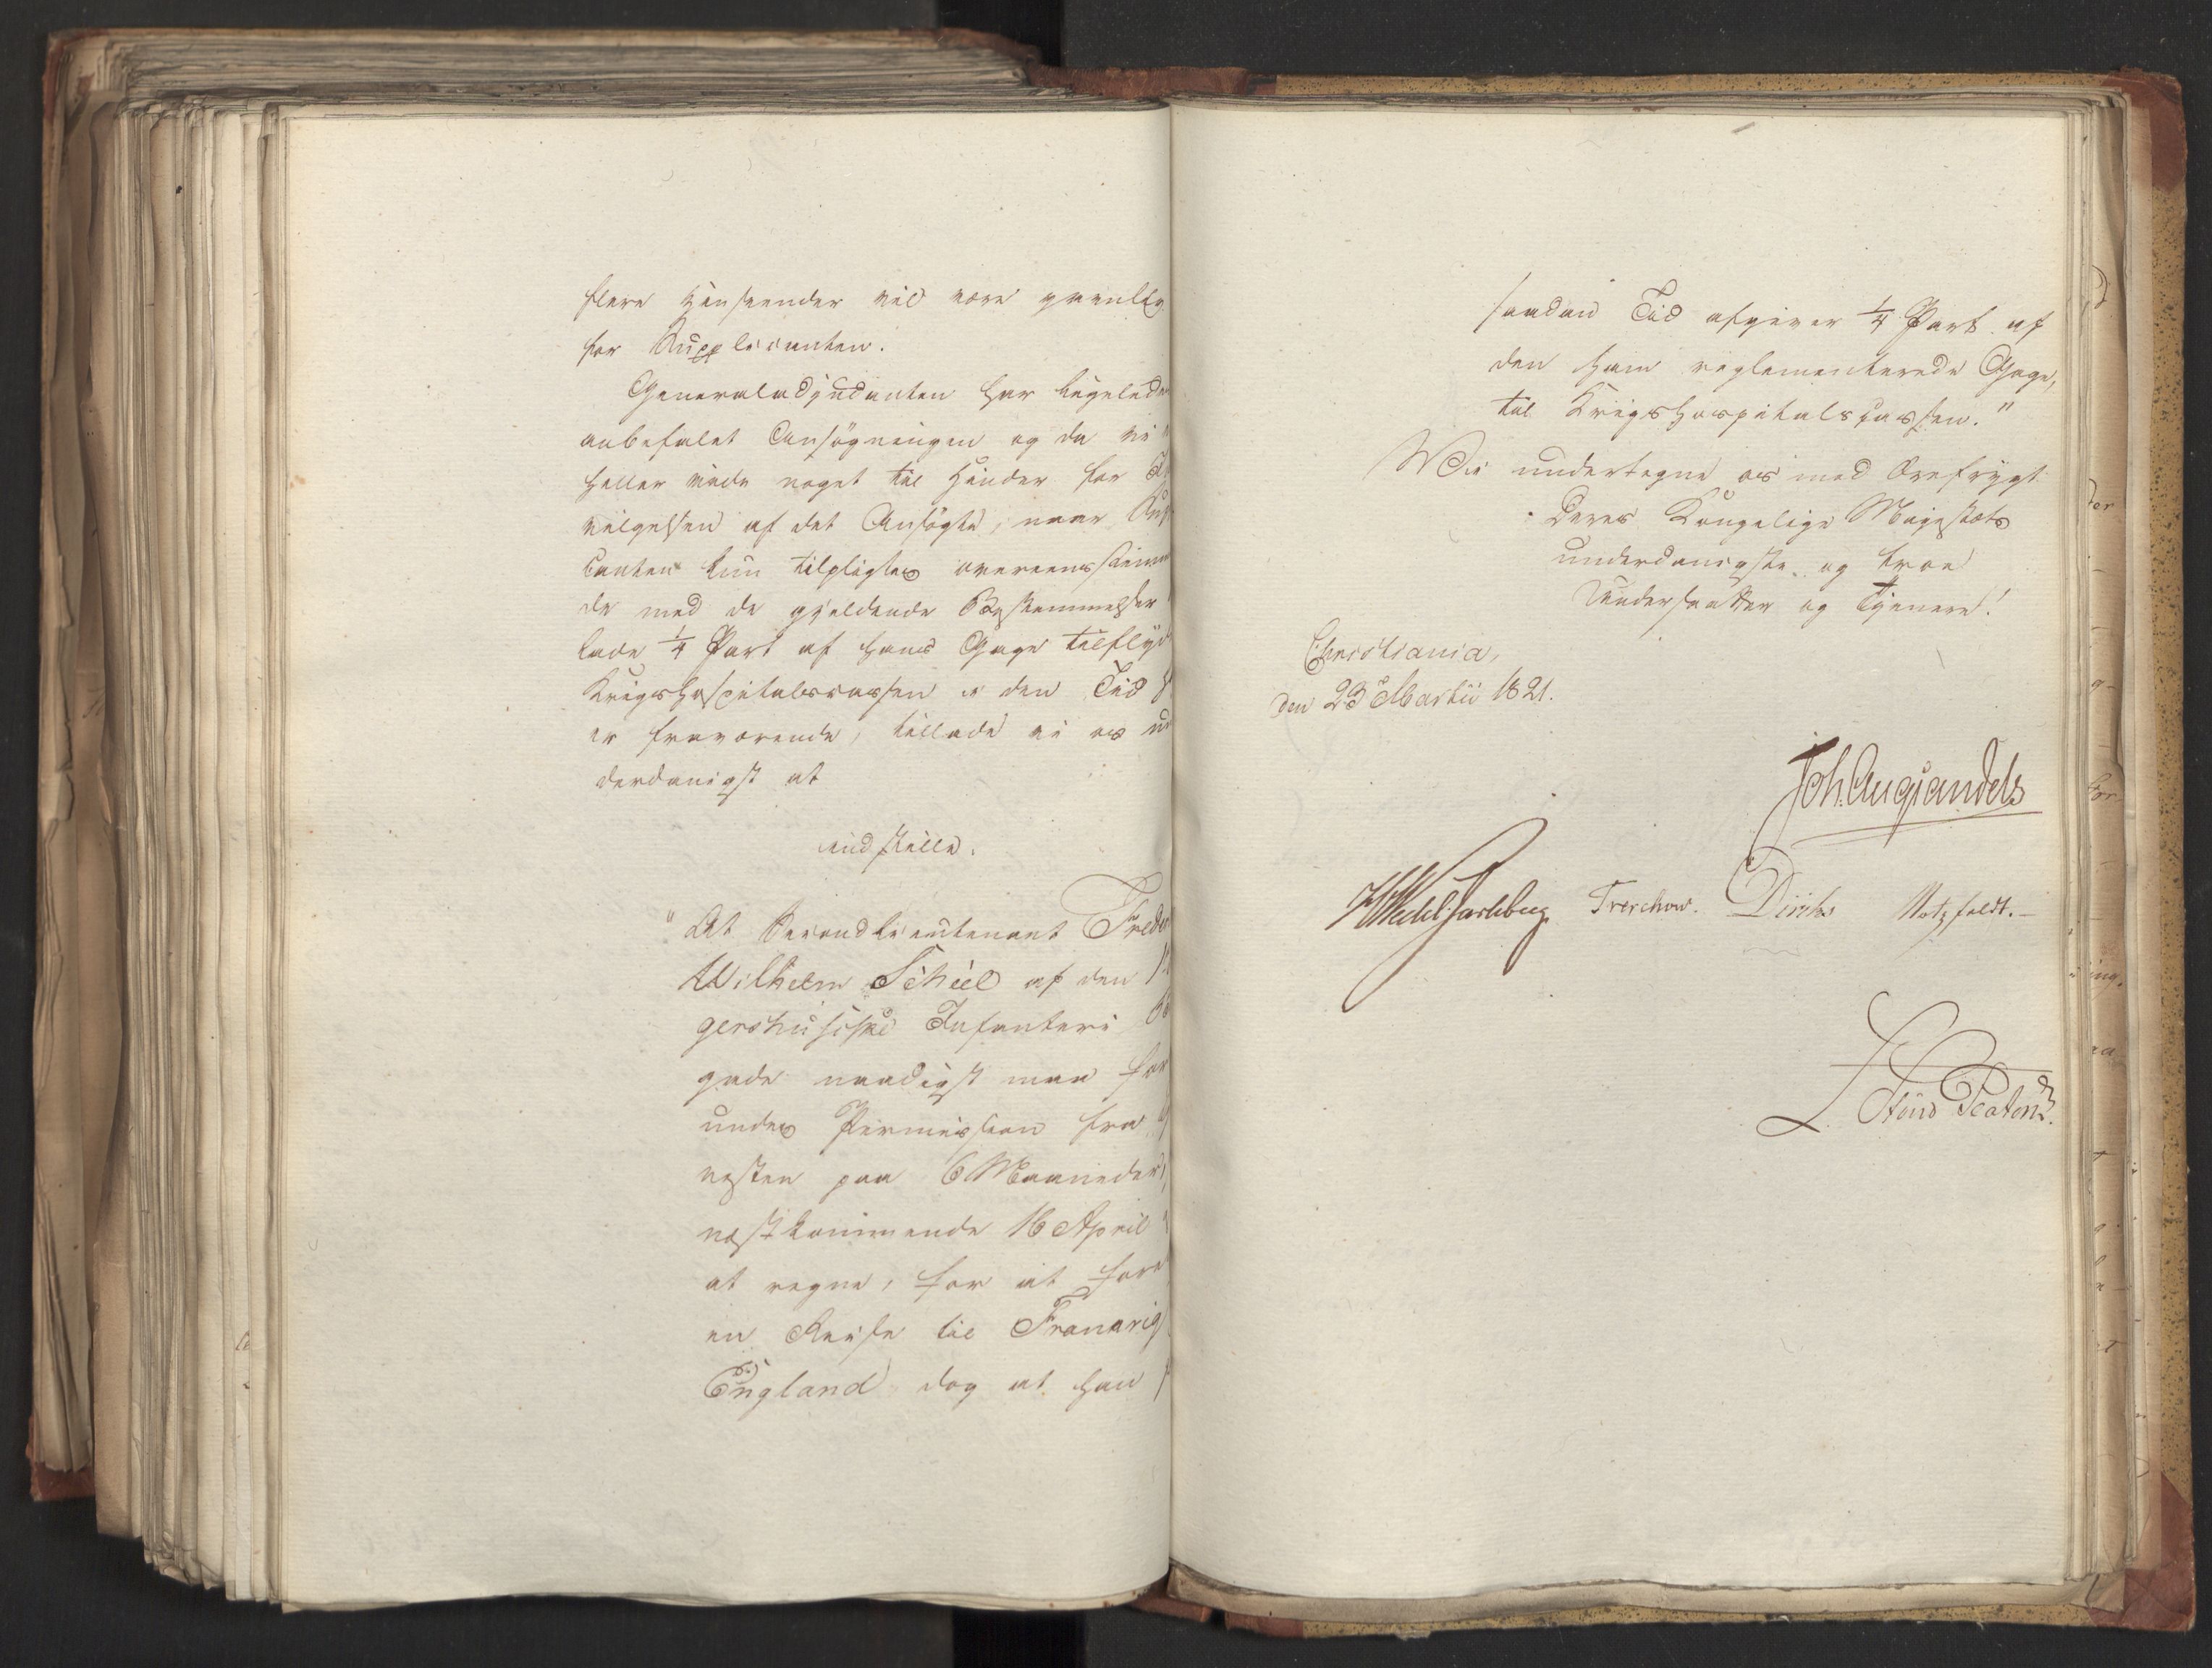 flere Henseender vil være gavnlig
for Supplicanten.
Generaladjudanten har ligeledes
anbefalet Ansøgningen og da vi
heller vide noget til Hinder for
vilgelsen af det Ansøgte, naar Sup
canten kun tilpligtes overeensstemmen
de med de gjeldende Bestemmelser
lade 1/4 Part af hans Gage tilflyde
Krigshospitalscassen i den Tid
er fraværende, tillade vi os un
derdanigst at
indstille.
"At Secondlieutenant Freder
Wilhelm Schiel af den
gershusiske Infanteri
gade naadigst maa for
undes Permission fra
nesten paa 6 Maaneder,
næstkommende 16 April
at regne, for at fore
en Reise til Frankrig
England dog at han
saadan Tid afgiver 1/4 Part af
den ham reglementerede Gage,
til Krigshospitalscassen."
Vi undertegne os med Ærefrygt
Deres Kongelige Majestæts
underdanigste og troe
Undersaatter og Tjenere!
Christiania,
den 23 Martii 1821.
Joh. Aug. Sandels
HWedel Jarlsberg Treschow. Diriks Motzfeldt.